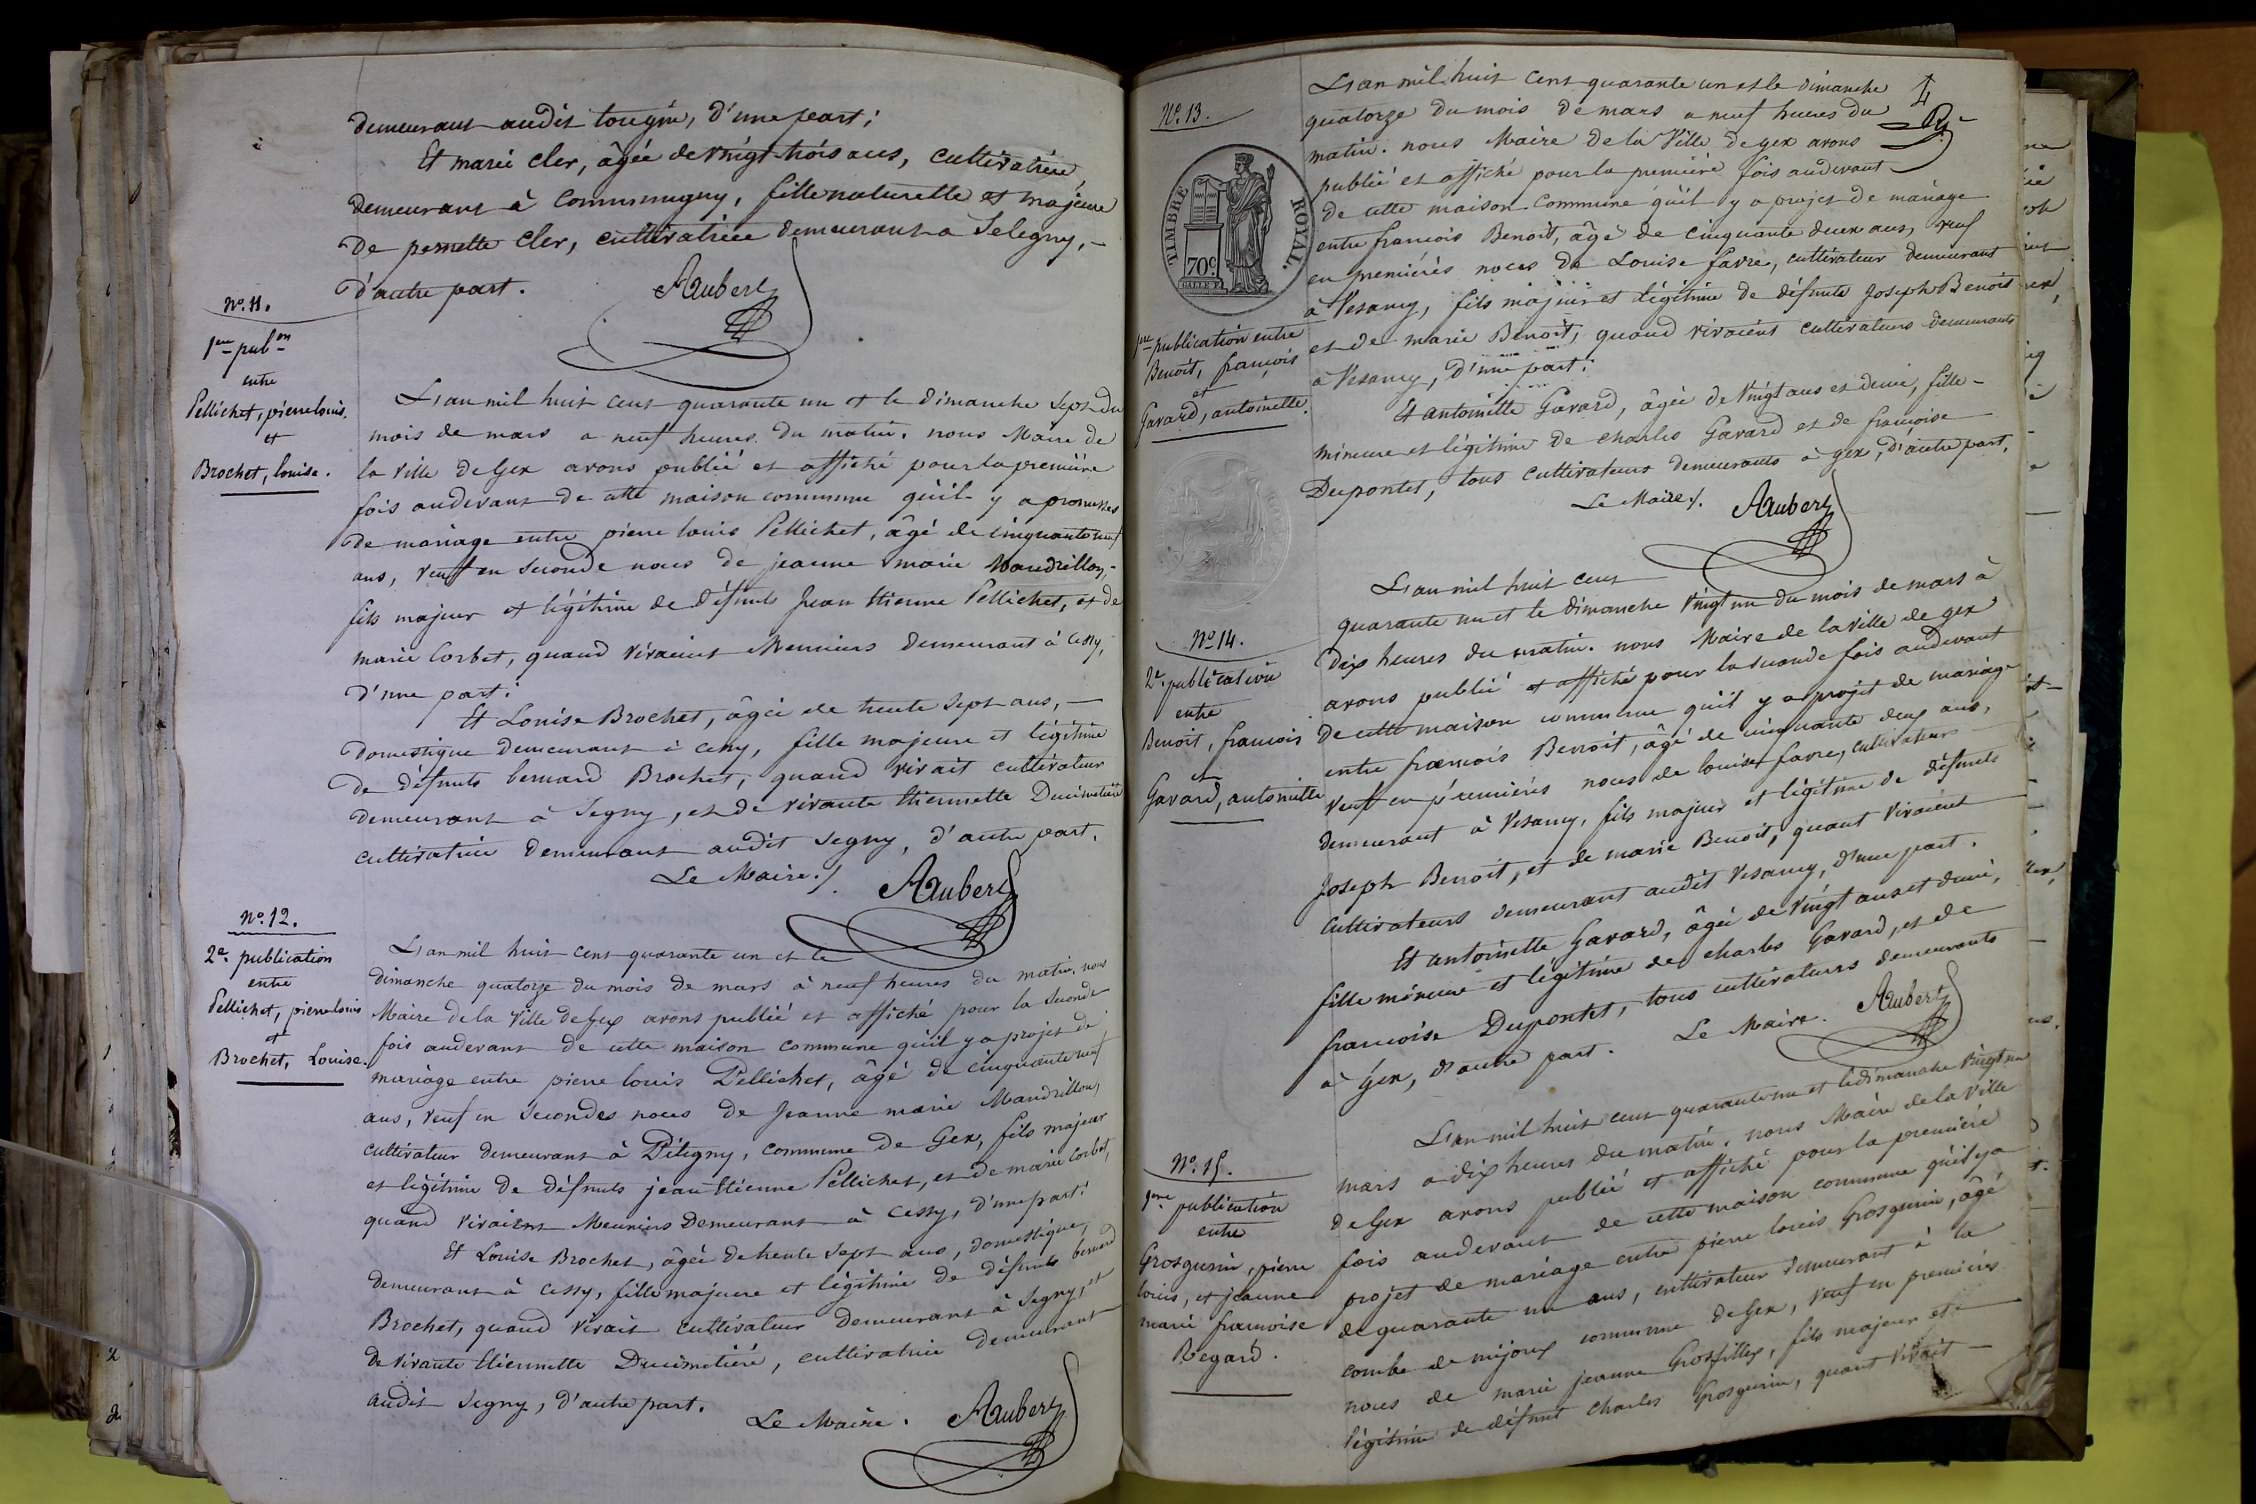 demeurant audit tougin, d'une part;
Et marie Cler, âgée de vingt-trois ans, cultivatrice,
demeurant à Commugny, fille naturelle et majeure
de pernette Cler, cultivatrice demeurant a Seligny,
d'autre part.
Aubert
No. 11.
1ere pub.on
entre
Pellichet, pierre louis.
et
Brochet, louise.
L'an mil huit cent quarante un et le dimanche sept du
mois de mars a neuf heures du matin. nous Maire de
la ville de Gex avons publié et affiché pour la première
fois audevant de cette maison commune qu'il y a promesses
de mariage entre pierre louis Pellichet, âgé de cinquante neuf
ans, veuf en seconde noces de jeanne marie Mandrillon,
fils majeur et légitime de défunts Jean Etienne Pellichet, et de
marie Corbet, quand vivaient Meuniers demeurant à Cessy,
d'une part:
Et Louise Brochet, âgée de trente sept ans,
domestique demeurant à Cessy, fille majeure et légitime
de défunts bernard Brochet, quand vivait cultivateur
demeurant à Segny, et de vivante Etiennette Ducimetière
cultivatrice demeurant audit Segny, d'autre part.
Le Maire ./. Aubert
No. 12.
2e. publication
entre
Pellichet, pierre louis
et
Brochet, Louise.
L'an mil huit cent quarante un et le
dimanche quatorze du mois de mars à neuf heures du matin. nous
Maire de la Ville de Gex avons publié et affiché pour la seconde
fois audevant de cette maison commune qu'il y a projet de
mariage entre pierre louis Pellichet, âgé de cinquante neuf
ans, veuf en secondes noces de Jeanne marie Mandrillon,
cultivateur demeurant à Pitegny, commune de Gex, fils majeur
et légitime de défunts jean Etienne Pellichet, et de marie Corbet,
quand vivaient Meuniers demeurant à Cessy, d'une part:
Et Louise Brochet, âgée de trente sept ans, domestique,
demeurant à Cessy, fille majeure et légitime de défunts bernard
Brochet, quand vivait cultivateur demeurant à Segny, et
de vivante Etiennette Ducimetière, cultivatrice demeurant
audit Segny, d'autre part.
Le Maire. Aubert
4
No. 13.
TIMBRE ROYAL.
70c.
1ere publication entre
Benoit, françois
et
Gavard, antoinette.
L'an mil huit cent quarante un et le dimanche
quatorze du mois de mars a neuf heures du
matin. nous Maire de la Ville de gex avons
publié et affiché pour la première fois audevant
de cette maison commune qu'il y a projet de mariage
entre francois Benoit, âgé de cinquante deux ans, veuf
en premières noces de Louise favre, cultivateur demeurant
à Vesancy, fils majeur et légitime de défunts Joseph Benoit
et de marie Benoit, quand vivaient cultivateurs demeurants
à Vesancy, d'une part:
Et antoinette Gavard, âgée de vingt ans et demi, fille
mineure et légitime de charles Gavard et de françoise
Dupontet, tous cultivateurs demeurants à gex, d'autre part.
Le Maire ./. Aubert
No. 14.
2e. publication
entre
Benoit, francois
et
Gavard, antoinette
L'an mil huit cent
quarante un et le dimanche vingt un du mois de mars à
dix heures du matin. nous Maire de la ville de gex
avons publié et affiché pour la seconde fois audevant
de cette maison commune qu'il y a projet de mariage
entre francois Benoit, âgé de cinquante deux ans,
veuf en premières noces de louise favre, cultivateur
demeurant à Vesancy, fils majeur et légitime de défunts
Joseph Benoit, et de marie Benoit, quant vivaient
cultivateurs demeurant audit Vesancy, d'une part.
Et antoinette Gavard, âgée de vingt ans et demi,
fille mineure et légitime de charles Gavard, et de
francoise Dupontet, tous cultivateurs demeurants
à Gex, d'autre part. Le Maire. Aubert
No. 15.
1ere publication
entre
Grosgurin, pierre
louis, et jeanne
marie francoise
Regard.
L'an mil huit cent quarante un et le dimanche vingt un
mars a dix heures du matin, nous Maire de la Ville
de Gex avons publié et affiché pour la première
fois audevant de cette maison commune qu'il y a
projet de mariage entre pierre louis Grosgurin, âgé
de quarante un ans, cultivateur demeurant à la
combe de mijoux commune de Gex, veuf en premières
noces de marie jeanne Grosfillex, fils majeur et
légitime de défunt charles Grosgurin, quant vivait